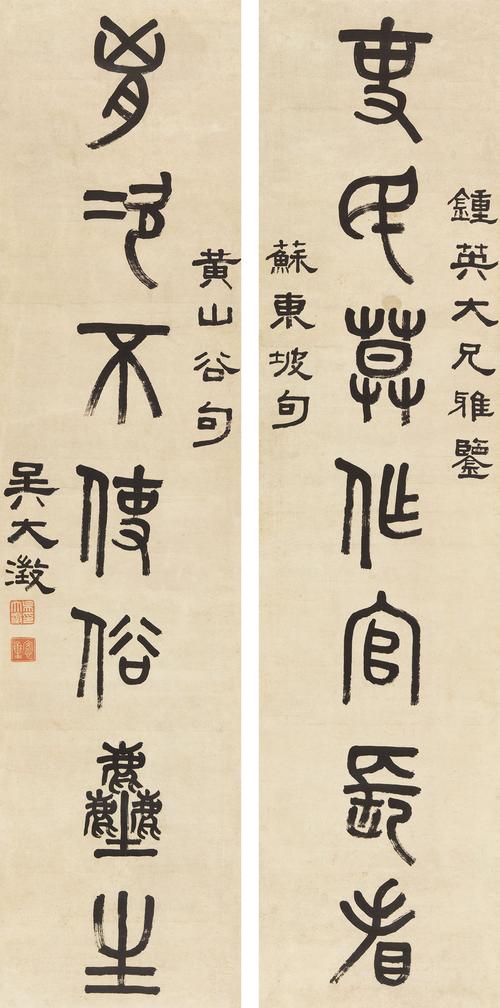 鍾英大兄雅鑒
吏民莫作官長看
蘇東坡句
黃山谷句
胷次不使俗塵生
吳大澂